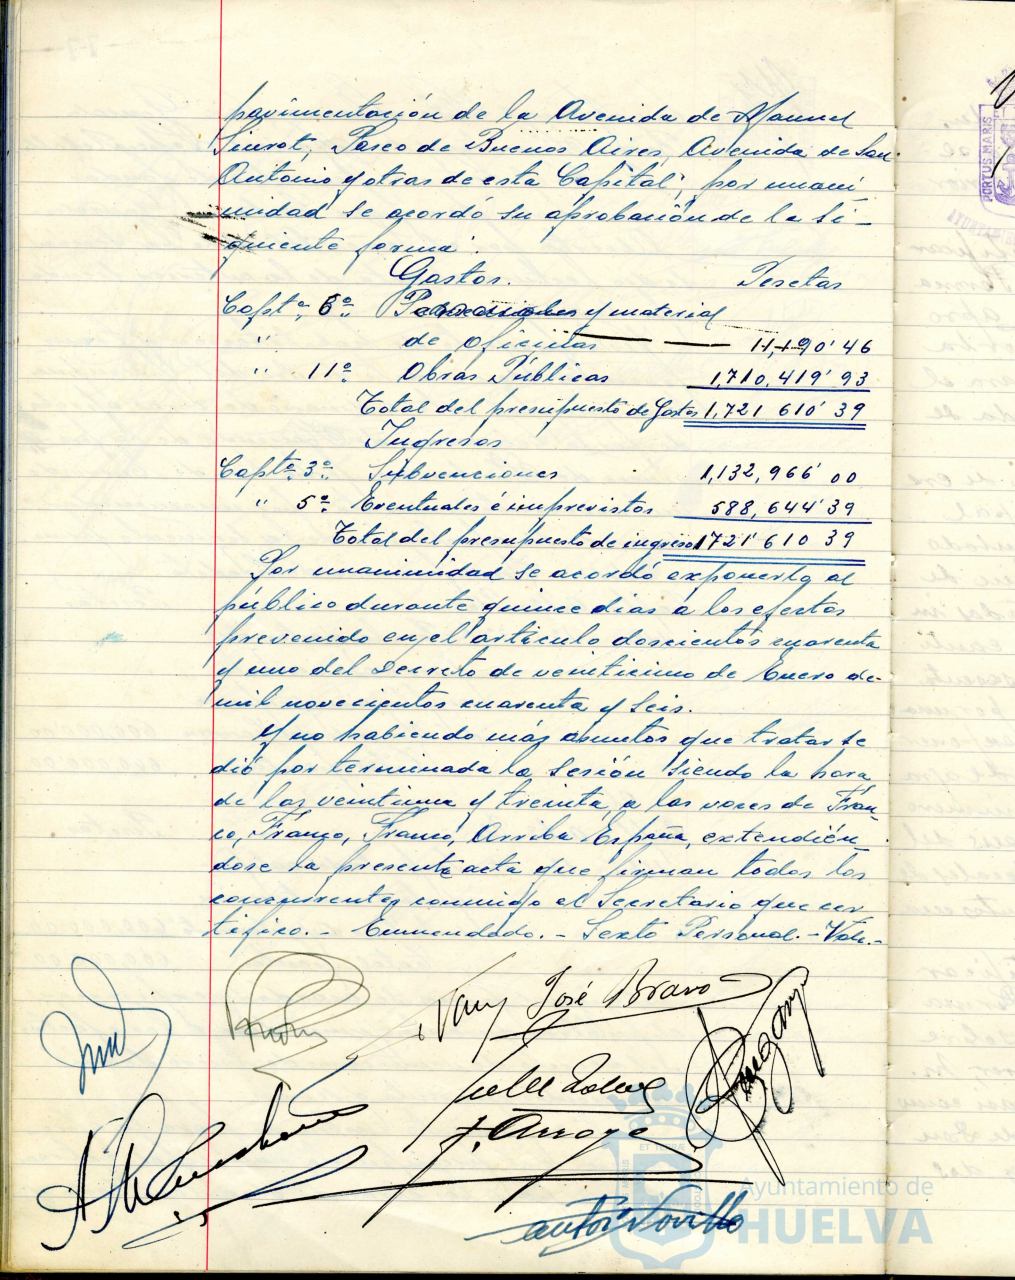 pavimentación de la Avenida de Manuel
Siurot, Paseo de Buenos Aires, Avenida de San
Antonio y otras de esta Capital, por unani
midad se acordó su aprobación de la si-
guiente forma:
Gastos. Pesetas
Captº 6º Personal y material
" de oficinas 11,190'46
" 11º Obras Públicas 1,710,419'93
Total del presupuesto de Gastos 1,721 610'39
Ingresos
Captº 3º Subvenciones 1,132,966'00
" 5º Eventuales é imprevistos 588,644'39
Total del presupuesto de ingresos 1721'610 39
Por unanimidad se acordó exponerlo al
público durante quince dias a los efectos
prevenido en el artículo doscientos cuarenta
y uno del Decreto de veinticinco de Enero de
mil novecientos cuarenta y seis.
Y no habiendo más asuntos que tratar se
dió por terminada la sesión siendo la hora
de las veintiuna y treinta, a las voces de Fran-
co, Franco, Franco, Arriba España, extendién-
dose la presente acta que firman todos los
concurrentes conmigo el Secretario que cer
tifico.- Enmendado.- Sexto Personal.- Vale.-
José Bravo
F. Arroyo
Ayuntamiento de
HUELVA
PORTUS MARIS